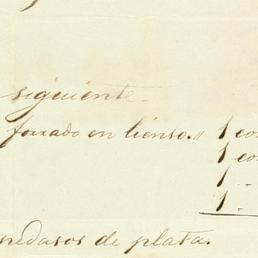 siguiente.
forzado en lienso. " 1 con
1 con
1 -
1 -
pedasos de plata.